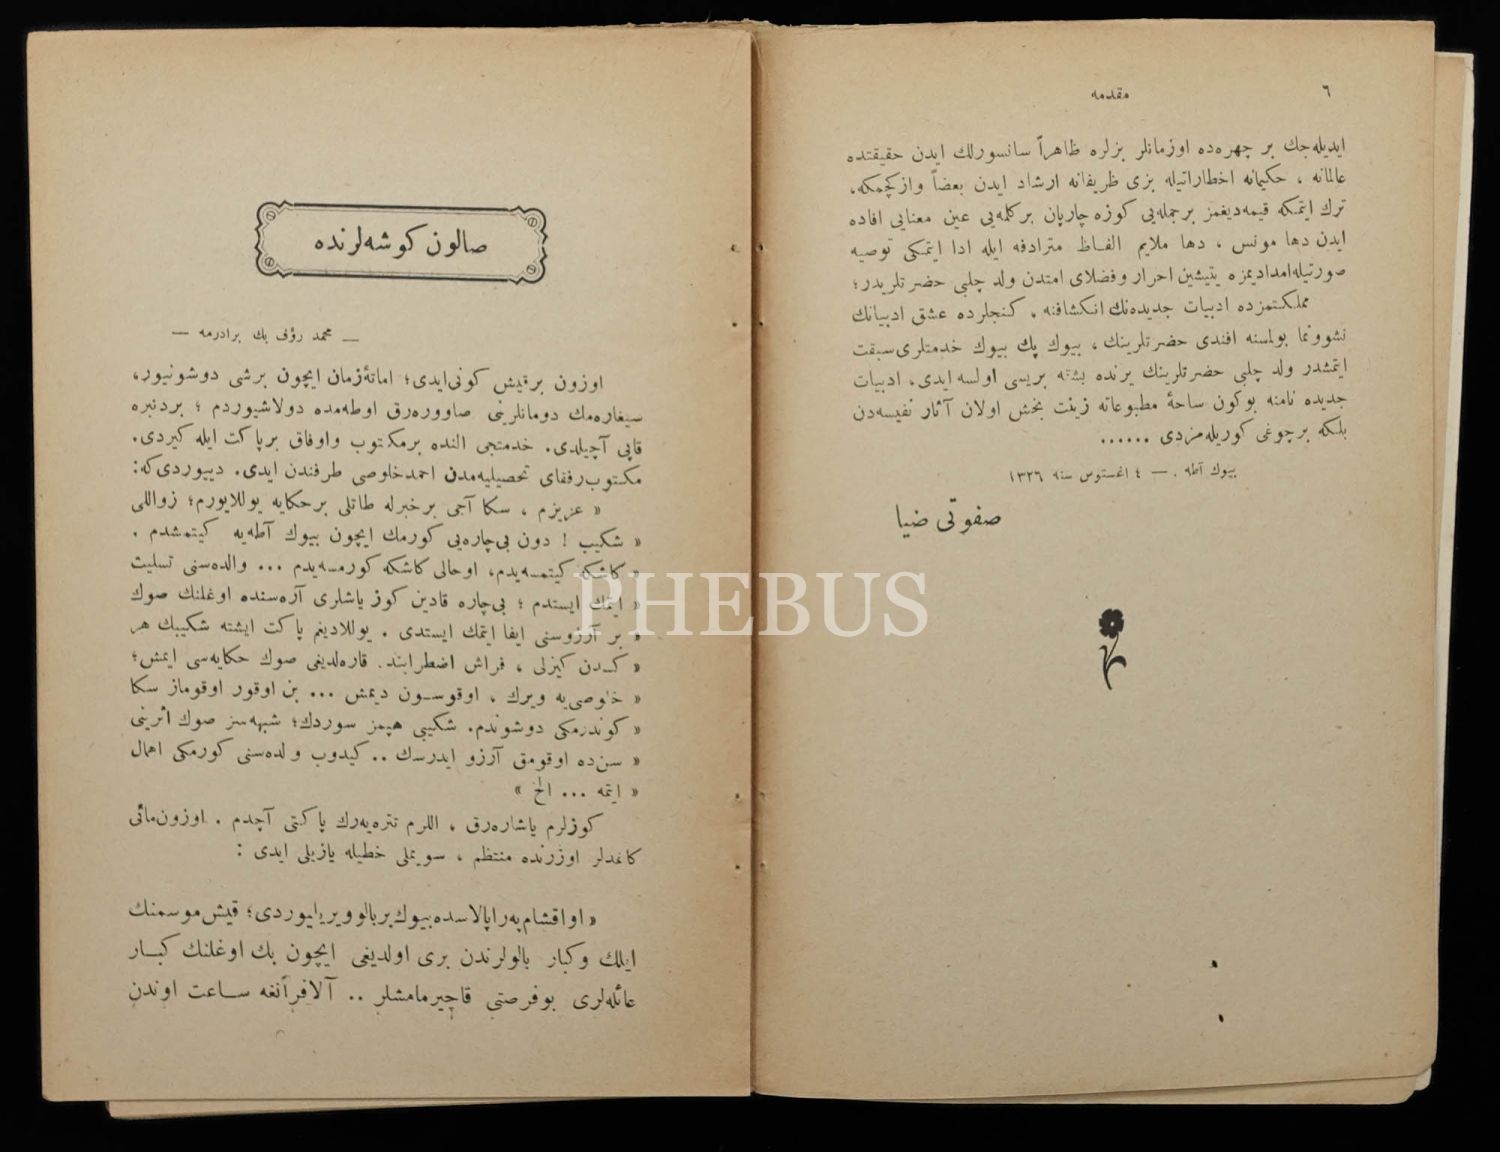 ٦
مقدمه
ايديله‌جك بر چهره‌ده اوزمانلر بزلره ظاهراً سانسورلك ايدن حقيقتده
عالمانه ، حكيمانه اخطاراتيله بزى ظريفانه ارشاد ايدن بعضاً وازكچمكه،
ترك ايتمكه قيمه‌ديغمز برجمله‌يى كوزه چارپان بركلمه‌يى عين معنايى افاده
ايدن دها مونس ، دها ملايم الفاظ مترادفه ايله ادا ايتمكى توصيه
صورتيله‌امداديمزه يتيشين احرار وفضلاى امتدن ولد چلبى حضرتلريدر؛
مملكتمزده ادبيات جديده‌نك انكشافنه ، كنجلرده عشق ادبياتك
نشوونما بولسنه افندى حضرتلرينك ، بيوك پك بيوك خدمتلرى سبقت
ايتمشدر ولد چلبى حضرتلرينك يرنده بشقه بريسى اولسه ايدى، ادبيات
جديده نامنه بوكون ساحۀ مطبوعاته زينت بخش اولان آثار نفيسه‌دن
بلكه برچوغى كوريله‌مزدى ......
بيوك آطه . — ٤ اغستوس سنه ١٣٢٦
صفوتى ضيا
صالون كوشه‌لرنده
— محمد رؤف بك برادرمه —
اوزون برقيش كونى‌ايدى؛ اماتۀ‌زمان ايچون برشى دوشونيور،
سيغاره‌مك دومانلرينى صاووره‌رق اوطه‌مده دولاشيوردم ؛ بردنبره
قاپى آچيلدى. خدمتجى النده برمكتوب واوفاق برپاكت ايله كيردى.
مكتوب‌رفقاى تحصيليه‌مدن احمدخلوصى طرفندن ايدى. دييوردى‌كه:
« عزيزم ، سكا آجى برخبرله طاتلى برحكايه يوللايورم؛ زواللى
« شكيب ! دون بى‌چاره‌يى كورمك ايچون بيوك آطه‌يه كيتمشدم .
« كاشكه كيتمسه‌يدم، اوحالى كاشكه كورمسه‌يدم ... والده‌سنى تسليت
« ايتمك ايستدم ؛ بى‌چاره قادين كوز ياشلرى آره‌سنده اوغلنك صوك
« بر آرزوسنى ايفا ايتمك ايستدى . يوللاديغم پاكت ايشته شكيبك هر
« كسدن كيزلى ، فراش اضطرابنده قاره‌لديغى صوك حكايه‌سى ايمش؛
« خلوصى‌يه ويرك ، اوقوسون ديمش ... بن اوقور اوقوماز سكا
« كوندرمكى دوشوندم. شكيبى هپمز سوردك؛ شبهه‌سز صوك اثرينى
« سن‌ده اوقومق آرزو ايدرسك .. كيدوب والده‌سنى كورمكى اهمال
« ايتمه ... الخ »
كوزلرم ياشاره‌رق ، اللرم تتره‌يه‌رك پاكتى آچدم . اوزون‌مائى
كاغدلر اوزرنده منتظم ، سويملى خطيله يازيلى ايدى :
« اواقشام په‌راپالاسده بيوك‌بربالو ويريليوردى؛ قيش‌موسمنك
ايلك وكبار بالولرندن برى اولديغى ايچون بك اوغلنك كبار
عائله‌لرى بوفرصتى قاچيرمامشلر .. آلافرانغه ساعت اوندن
PHEBUS